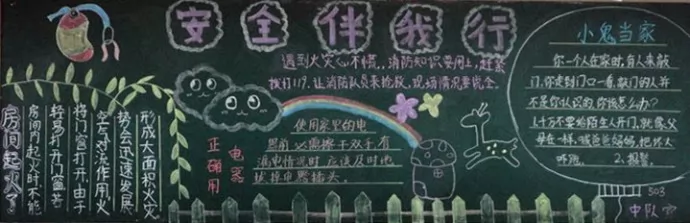 安全伴我行
遇到火灾心不慌，消防知识要用上，赶紧
拨打119，让消防队员来抢救，现场情况要说全。
房间起火了！
房间内起火时不能
轻易打开门窗若
将门窗打开，由于
空气对流作用火
势会迅速发展
形成大面积火灾
正确用
电器
使用家里的电
器前必需擦干双手有
漏电情况时应该及时地
拔掉电器插头。
小鬼当家
你一个人在家时，有人来敲
门，你走到门口一看，敲门的人并
不是你认识的，你该怎么办？
1、千万不要给陌生人开门，就像父
母在一样，喊爸爸妈妈，把坏人
吓跑。 2、报警。
503
中队